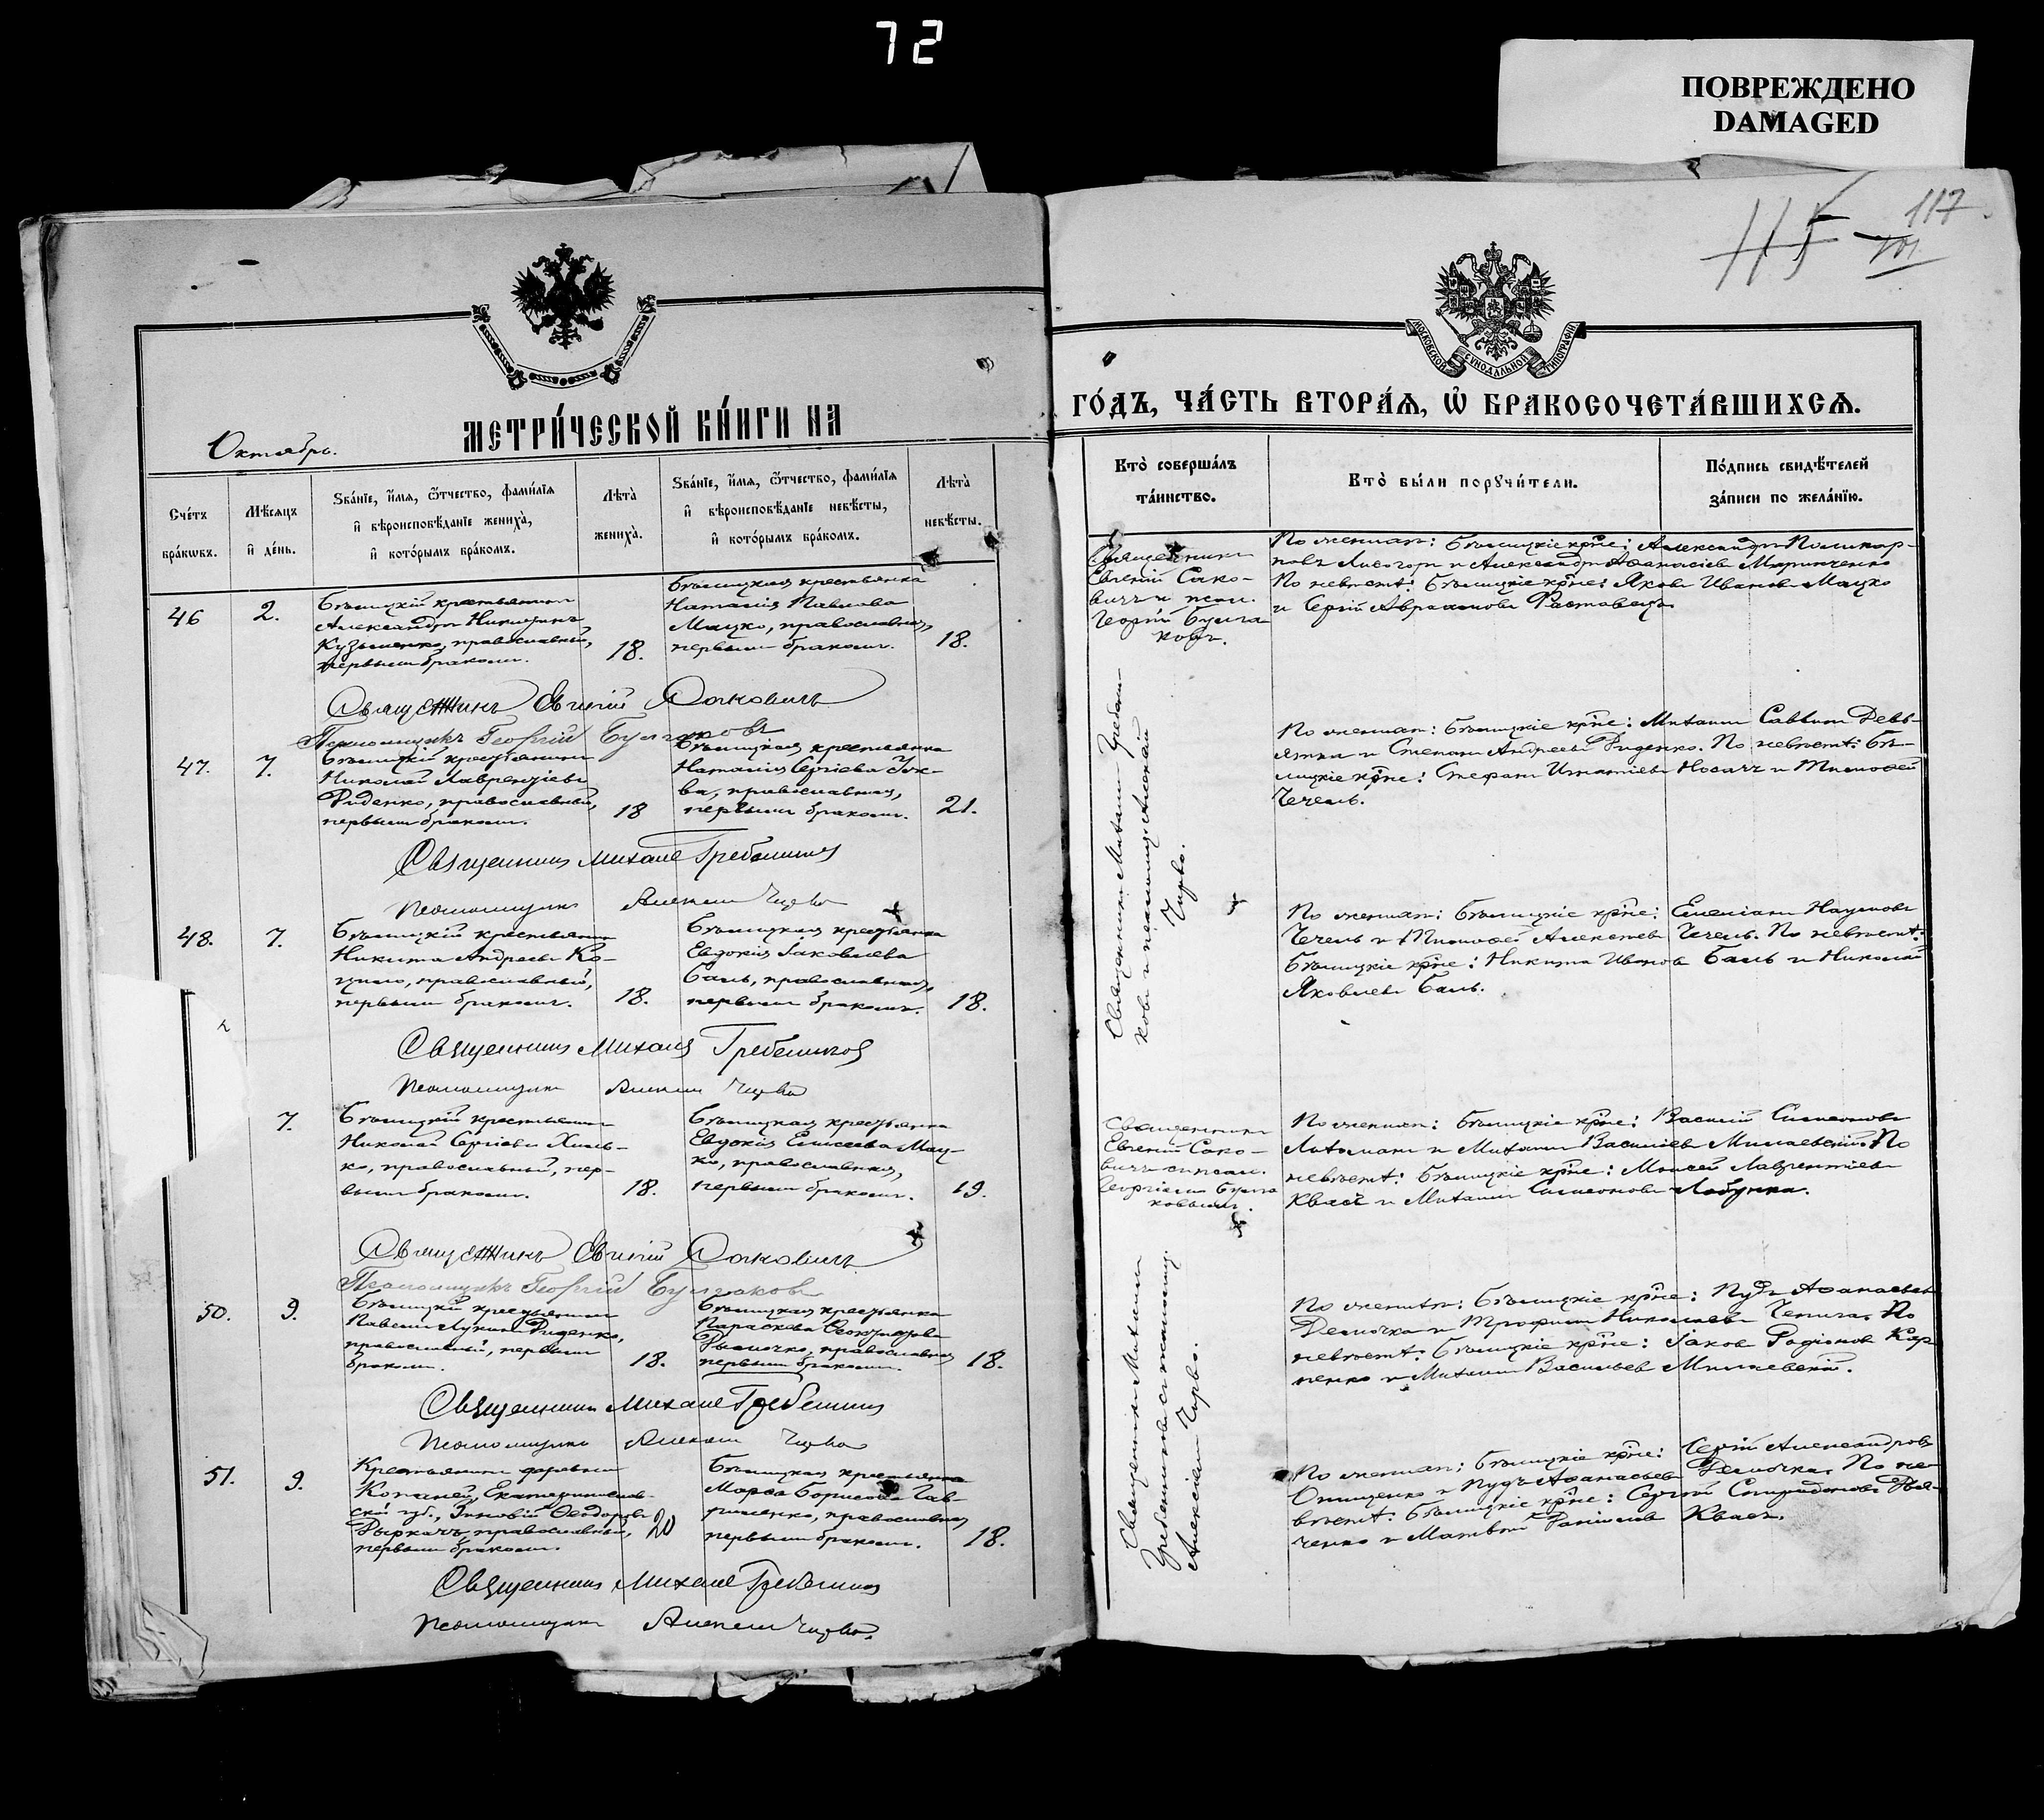 72
ПОВРЕЖДЕНО
DAMAGED
115
117.
101
МОСКОВСКОЙ СѴНОДАЛЬНОЙ ТИПОГРАФІИ
Октябрь.
МЕТРИ́ЧЕСКОЙ КНИ́ГИ НА
ГО́ДЪ, ЧА́СТЬ ВТОРА́Я, Ѡ҆ БРАКОСОЧЕТА́ВШИХСЯ.
Сче́тъ
бра́кѡвъ.
Мѣ́сяцъ
и҆ де́нь.
Ѕва́нїе, и҆́мя, ѻ҆́тчество, фами́лїя
и҆ вѣроисповѣ́данїе жениха̀,
и҆ кото́рымъ бра́комъ.
Лѣта̀
жениха̀.
Ѕва́нїе, и҆́мя, ѻ҆́тчество, фами́лїя
и҆ вѣроисповѣ́данїе невѣ́сты,
и҆ кото́рымъ бра́комъ.
Лѣта̀
невѣ́сты.
Кто̀ соверша́лъ
та́инство.
Кто̀ бы́ли порꙋчи́тели.
По́дпись свидѣ́телей
за́писи по жела́нїю.
46
2.
Бѣлицкій крестьянинъ
Александръ
Кузьменко, православный,
первымъ бракомъ.
18.
Бѣлицкая крестьянка
Наталія Павлова
Мацко, православная,
первымъ бракомъ.
18.
Священникъ
Евгеній Сако-
вичъ и псал.
Георгій Булга
ковъ.
По женихѣ: Бѣлицкіе кр-не: Александръ Поликар-
повъ и Александръ Аѳанасіевъ
По невѣстѣ: Бѣлицкіе кр-не: Яковъ Ивановъ Мацко
и Сергій
Священникъ Евгеній Саковичъ
Псаломщикъ Георгій Булгаковъ
47.
7.
Бѣлицкій крестьянинъ
Николай Лаврентіевъ
Руденко, православный,
первымъ бракомъ.
18
Бѣлицкая крестьянка
Наталія Сергіева
православная,
первымъ бракомъ.
21.
Священникъ Михаилъ Гребенни-
ковъ и псаломщ. Алексій
Чирво.
По женихѣ: Бѣлицкіе кр-не: Михаилъ Саввинъ
и Степанъ Андреевъ Руденко. По невѣстѣ: Бѣ-
лицкіе кр-не: Стефанъ Игнатіевъ Носачъ и Тимоѳей
Чечель.
Священникъ Михаилъ Гребенниковъ
Псаломщикъ Алексій Чирво
48.
7.
Бѣлицкій крестьянинъ
Никита Андреевъ Ко-
православный,
первымъ бракомъ.
18.
Бѣлицкая крестьянка
Евдокія Іаковлева
Баль, православная,
первымъ бракомъ.
18.
По женихѣ: Бѣлицкіе кр-не: Емеліанъ Наумовъ
Чечель и Тимоѳей Алексѣевъ Чечель. По невѣстѣ:
Бѣлицкіе кр-не: Никита Ивановъ Баль и Николай
Яковлевъ Баль.
Священникъ Михаилъ Гребенниковъ
Псаломщикъ Алексій Чирво
7.
Бѣлицкій крестьянинъ
Николай Сергіевъ Хиль-
ко, православный, пер-
вымъ бракомъ.
18.
Бѣлицкая крестьянка
Евдокія Елисеева Мац-
ко, православная,
первымъ бракомъ.
19.
Священникъ
Евгеній Сако-
вичъ съ псал.
Георгіемъ Булга
ковымъ.
По женихѣ: Бѣлицкіе кр-не: Василій Симеоновъ
и Михаилъ Василіевъ Милаевскій. По
невѣстѣ: Бѣлицкіе кр-не: Моисей Лаврентіевъ
Квасъ и Михаилъ Симеоновъ Лобунка.
Священникъ Евгеній Саковичъ
Псаломщикъ Георгій Булгаковъ
50.
9.
Бѣлицкій крестьянинъ
Павелъ Лукинъ Руденко,
православный, первымъ
бракомъ.
18.
Бѣлицкая крестьянка
Параскева
православная
первымъ бракомъ.
18.
Священникъ Михаилъ
Гребенниковъ съ псаломщ.
Алексіемъ Чирво.
По женихѣ: Бѣлицкіе кр-не: Пудъ Аѳанасьевъ
Демочка и Трофимъ Николаевъ По
невѣстѣ: Бѣлицкіе кр-не: Іаковъ Родіоновъ Кар
пенко и Михаилъ Васильевъ Милаевскій.
Священникъ Михаилъ Гребенниковъ
Псаломщикъ Алексій Чирво
51.
9.
Крестьянинъ деревни
Копаней, Екатеринослав-
ской губ., Зиновій Ѳеодоровъ
православный,
первымъ бракомъ.
20
Бѣлицкая крестьянка
Марѳа Борисова Гав-
риленко, православная,
первымъ бракомъ.
18.
По женихѣ: Бѣлицкіе кр-не: Сергій Александровъ
Онищенко и Пудъ Аѳанасьевъ Демочка. По не-
вѣстѣ: Бѣлицкіе кр-не: Сергій Спиридоновъ Дья-
ченко и Матвѣй Квасъ.
Священникъ Михаилъ Гребенниковъ
Псаломщикъ Алексій Чирво.